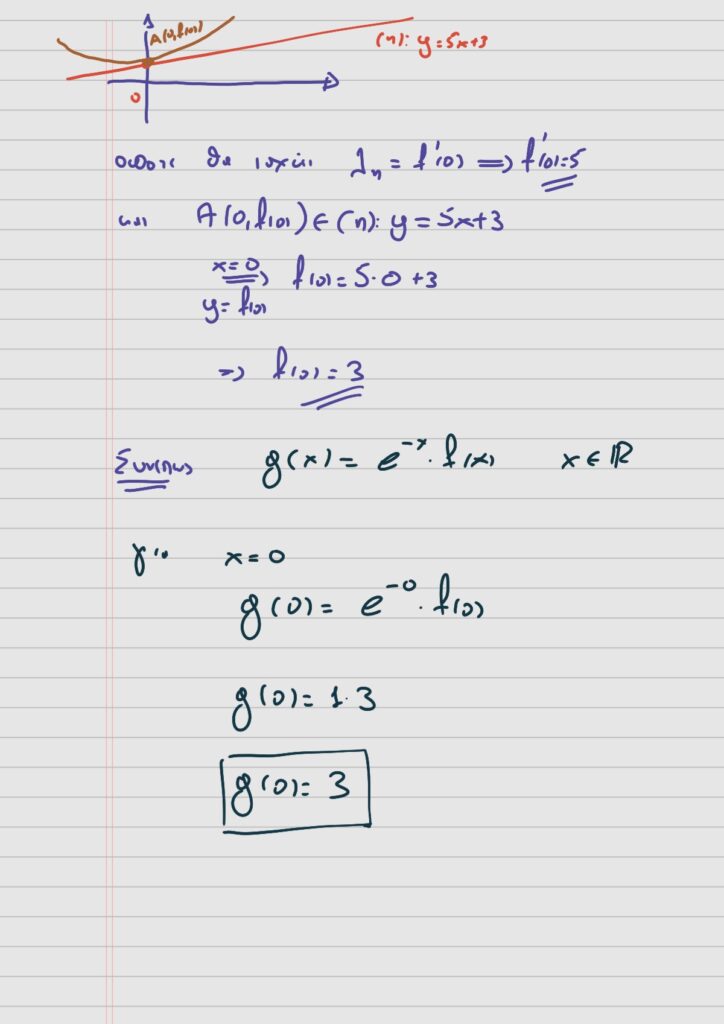 A(0,f(0))
(η): y=5x+3
0
οπότε θα ισχύει λη = f'(0) ⟹ f'(0)=5
και A(0,f(0)) ∈ (η): y=5x+3
x=0 ⟹ f(0)=5·0+3
y=f(0)
⇒ f(0)=3
Συνεπώς g(x)= e^{-x}·f(x) x∈ℝ
για x=0
g(0)= e^{-0}·f(0)
g(0)=1·3
g(0)=3